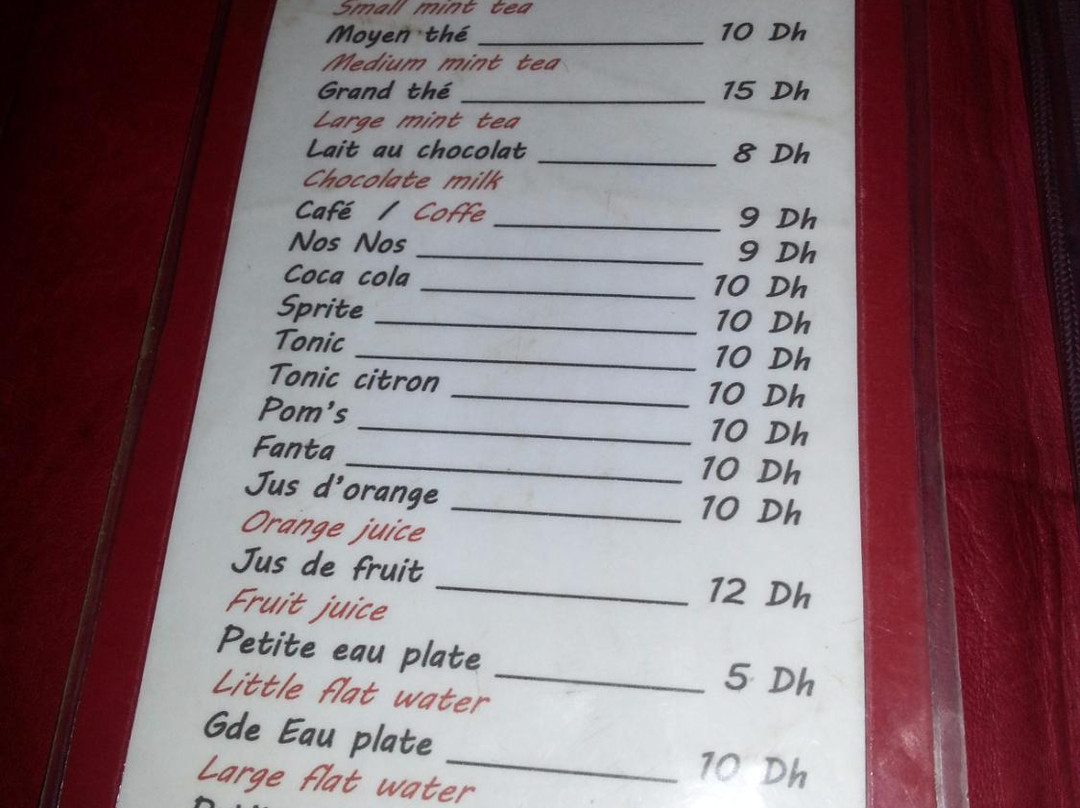 Small mint tea
Moyen thé 10 Dh
Medium mint tea
Grand thé 15 Dh
Large mint tea
Lait au chocolat 8 Dh
Chocolate milk
Café / Coffe 9 Dh
Nos Nos 9 Dh
Coca cola 10 Dh
Sprite 10 Dh
Tonic 10 Dh
Tonic citron 10 Dh
Pom's 10 Dh
Fanta 10 Dh
Jus d'orange 10 Dh
Orange juice
Jus de fruit 12 Dh
Fruit juice
Petite eau plate 5 Dh
Little flat water
Gde Eau plate 10 Dh
Large flat water